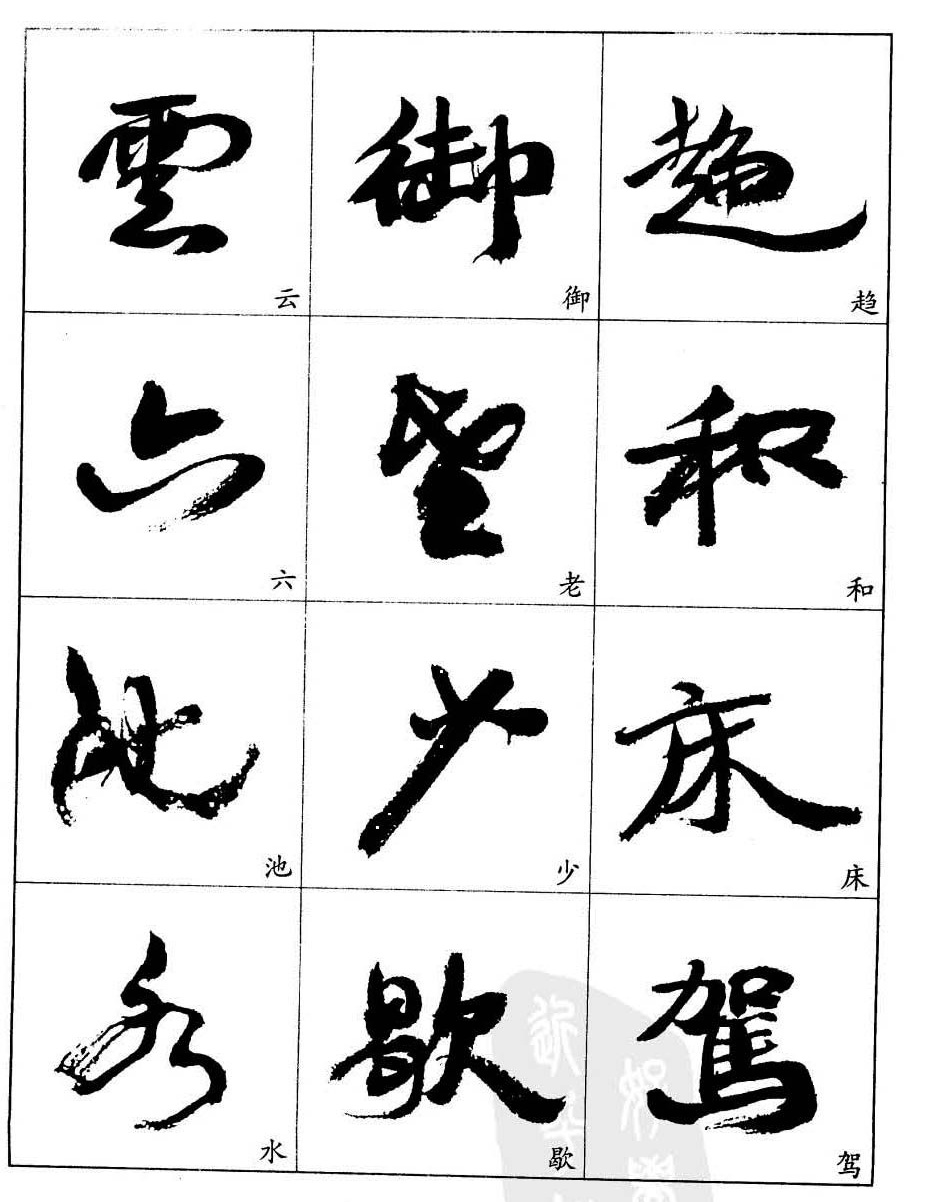 趍
趋
和
和
床
床
駕
驾
御
御
老
少
少
歇
歇
雲
云
六
六
池
池
水
水